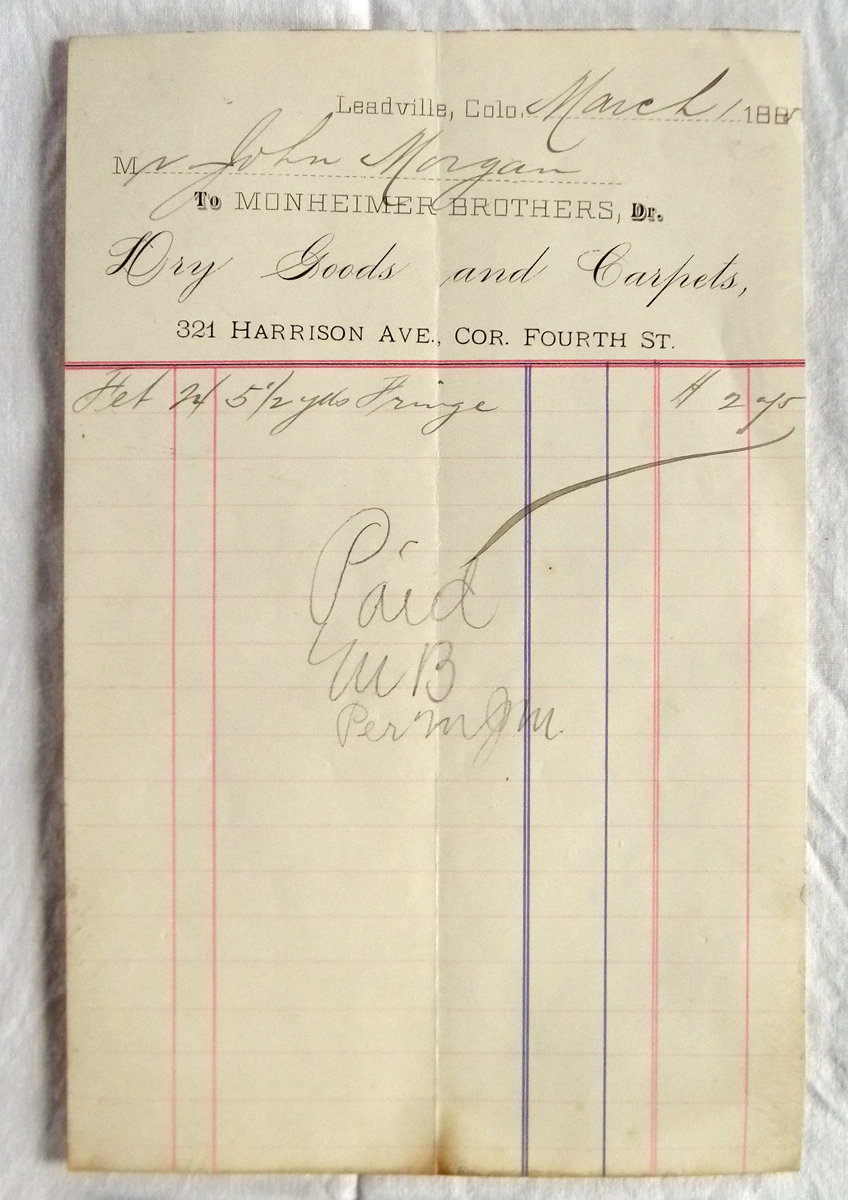 Leadville, Colo. March 1 188
Mr John Morgan
To MONHEIMER BROTHERS, Dr.
Dry Goods and Carpets,
321 HARRISON AVE., COR. FOURTH ST.
Feb 24 5 1/2 yds Fringe $ 2 75
Paid
M B
Per M J M.